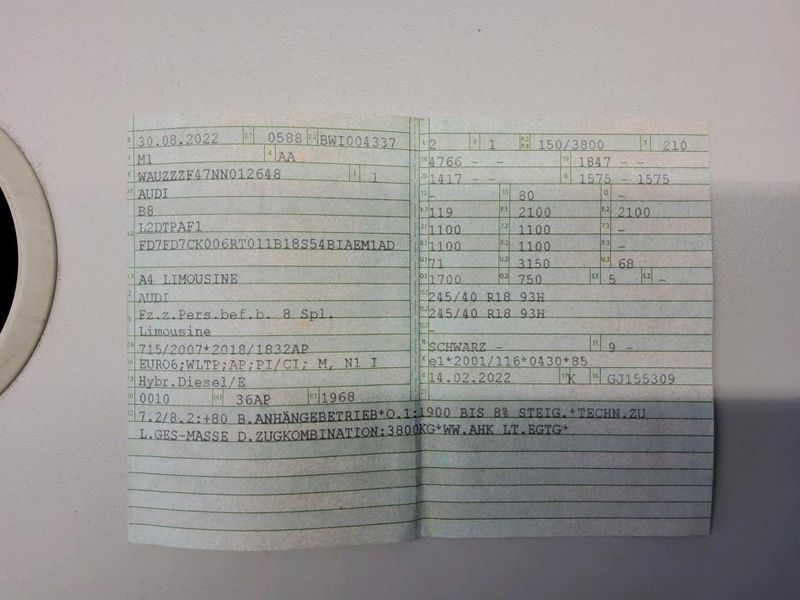 30.08.2022 2.1 0588 2.2 BWI004337
M1 4 AA
WAUZZZF47NN012648 3 1
AUDI
B8
L2DTPAF1
FD7FD7CK006RT011B18S54BIAEM1AD
A4 LIMOUSINE
AUDI
Fz.z.Pers.bef.b. 8 Spl.
Limousine
715/2007*2018/1832AP
EURO6;WLTP;AP;PI/CI; M, N1 I
Hybr.Diesel/E
0010 36AP 1968
7.2/8.2:+80 B.ANHÄNGEBETRIEB*O.1:1900 BIS 8% STEIG.*TECHN.ZU
L.GES-MASSE D.ZUGKOMBINATION:3800KG*WW.AHK LT.EGTG*
L 2 9 1 P.2 P.4 150/3800 T 210
18 4766 - - 19 1847 - -
20 1417 - - G 1575 - 1575
12 - 13 80 Q -
V.7 119 F.1 2100 F.2 2100
7.1 1100 7.2 1100 7.3 -
8.1 1100 8.2 1100 8.3 -
U.1 71 U.2 3150 U.3 68
O.1 1700 O.2 750 S.1 5 S.2 -
15.1 245/40 R18 93H
15.2 245/40 R18 93H
15.3 -
R SCHWARZ - 11 9 -
K e1*2001/116*0430*85
6 14.02.2022 17 K 16 GJ155309
21